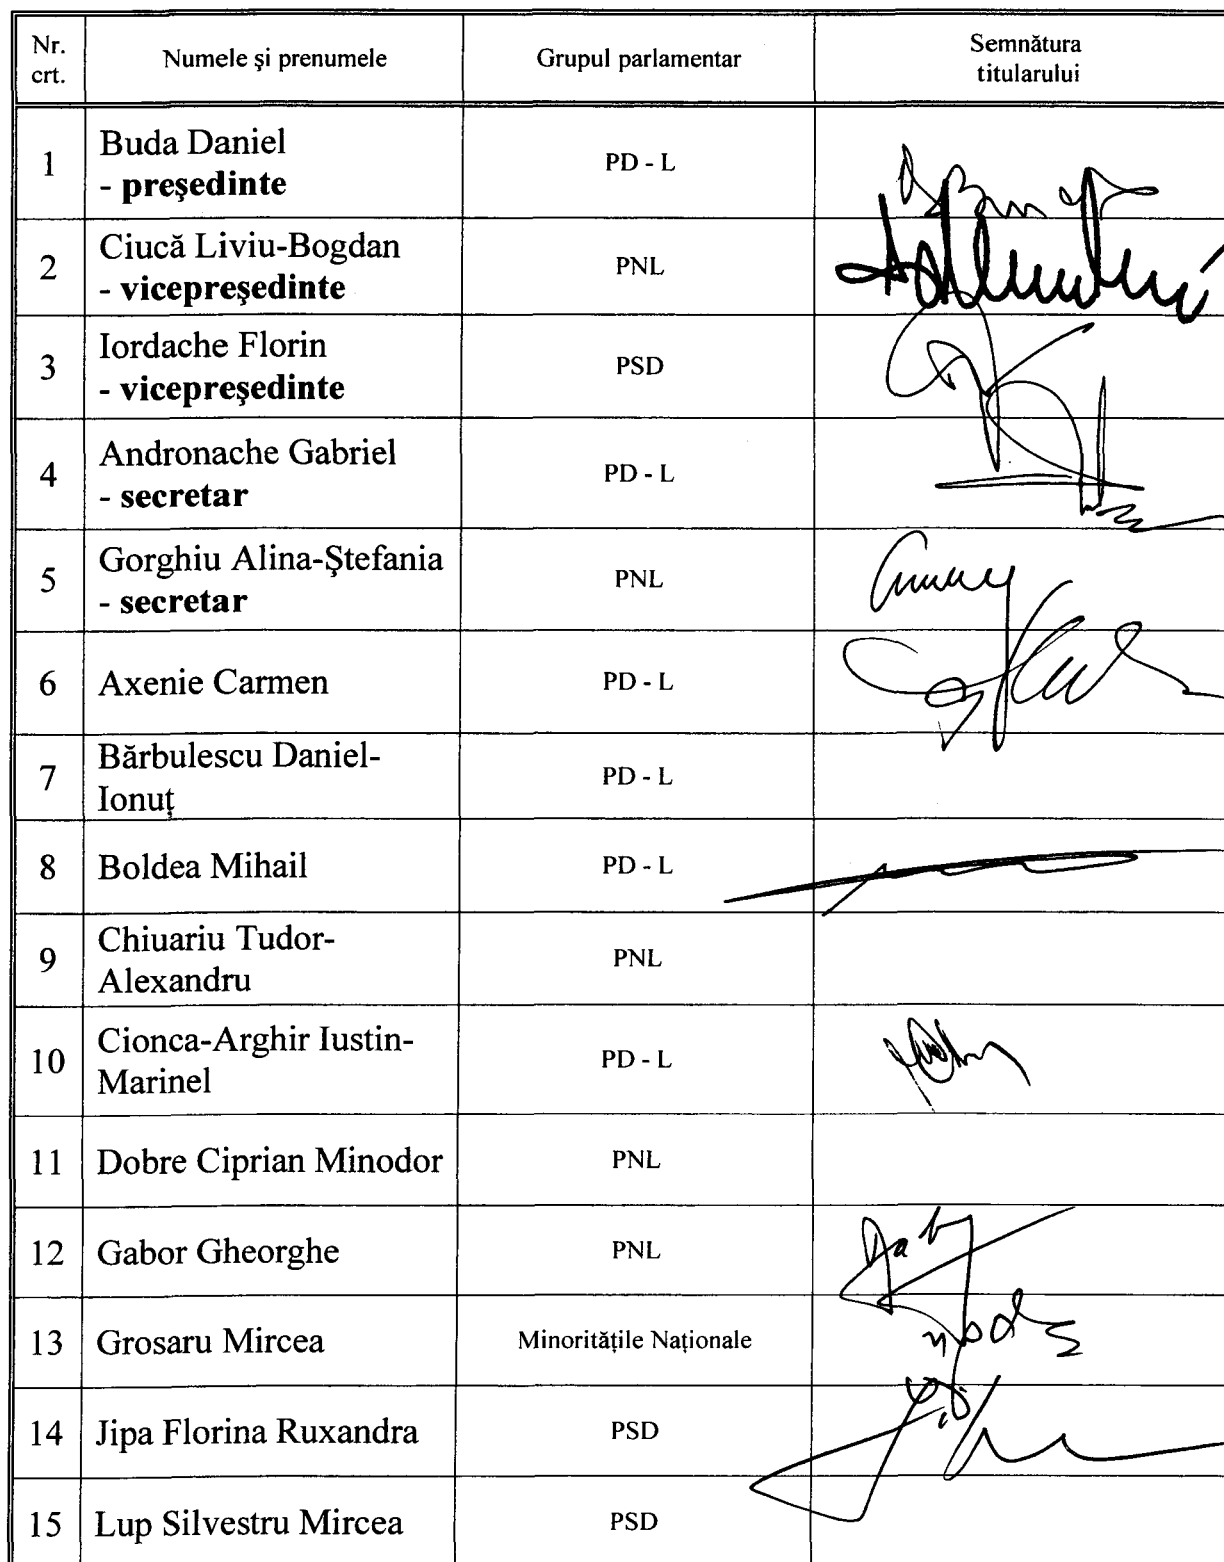 Nr.
crt.
Numele şi prenumele
Grupul parlamentar
Semnătura
titularului
1
Buda Daniel
- preşedinte
PD - L
2
Ciucă Liviu-Bogdan
- vicepreşedinte
PNL
3
Iordache Florin
- vicepreşedinte
PSD
4
Andronache Gabriel
- secretar
PD - L
5
Gorghiu Alina-Ştefania
- secretar
PNL
6
Axenie Carmen
PD - L
7
Bărbulescu Daniel-
Ionuţ
PD - L
8
Boldea Mihail
PD - L
9
Chiuariu Tudor-
Alexandru
PNL
10
Cionca-Arghir Iustin-
Marinel
PD - L
11
Dobre Ciprian Minodor
PNL
12
Gabor Gheorghe
PNL
13
Grosaru Mircea
Minorităţile Naţionale
14
Jipa Florina Ruxandra
PSD
15
Lup Silvestru Mircea
PSD